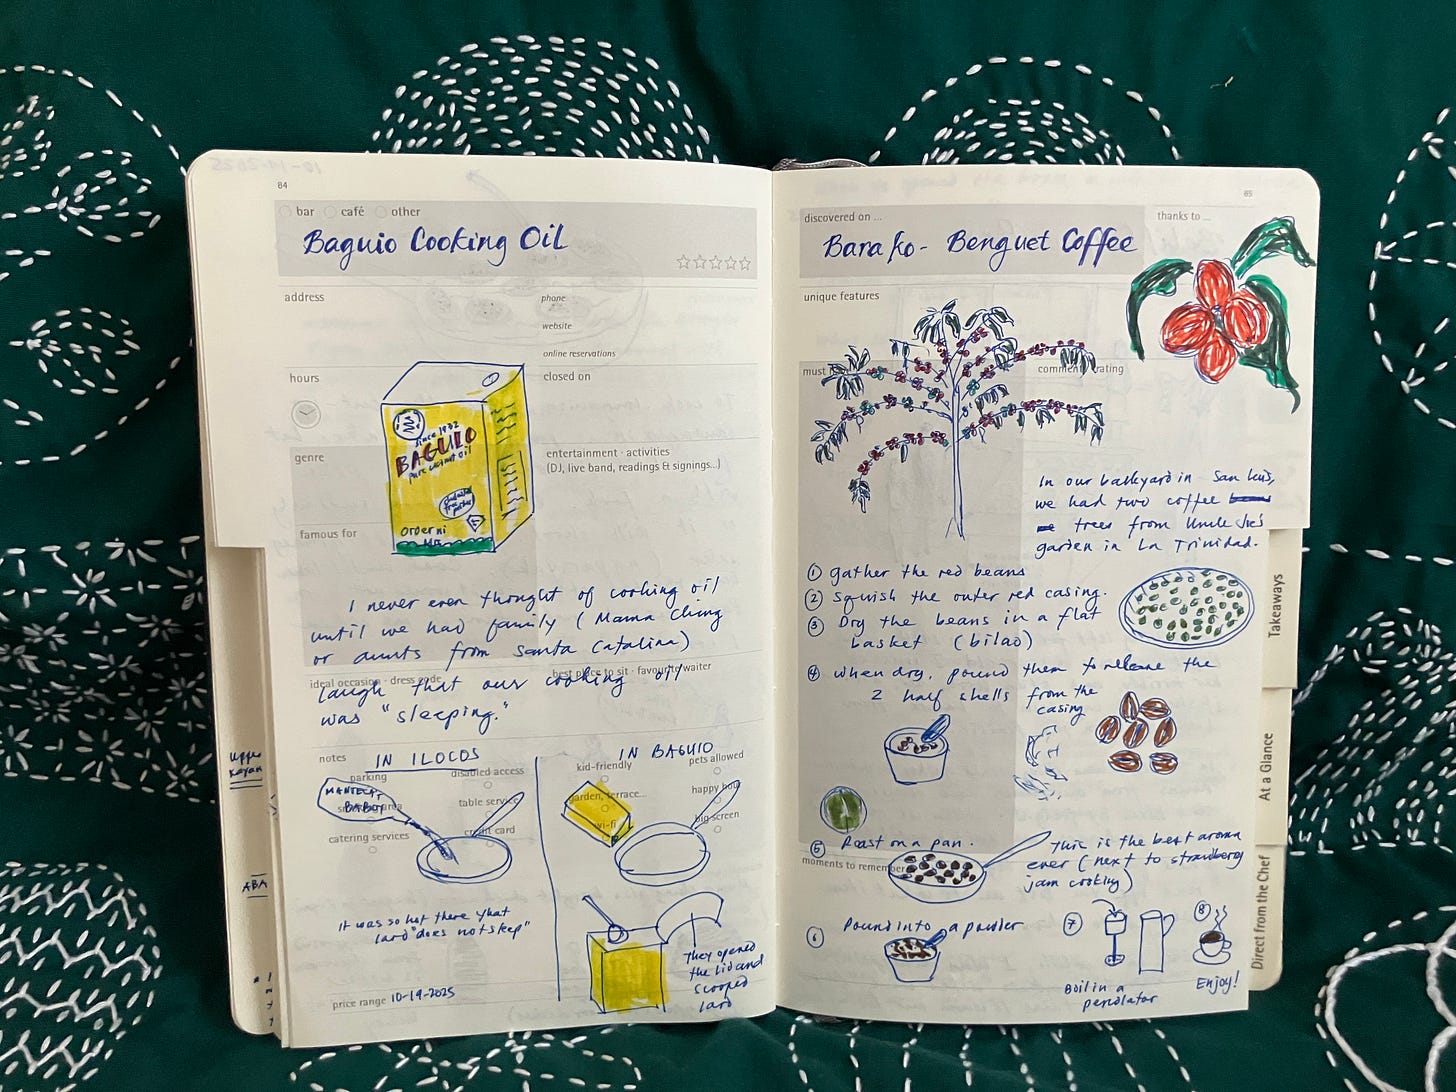 84
bar café other
Baguio Cooking Oil
address
phone
website
online reservations
hours
closed on
since 1932
BAGUIO
genre
entertainment · activities
(DJ, live band, readings & signings...)
famous for
Order ni
I never even thought of cooking oil
until we had family (Mama Ching
or aunts from Santa Catalina)
ideal occasion · dress code
best place to sit · favourite waiter
laugh that our cooking oil
was "sleeping."
notes
IN ILOCOS
parking
disabled access
MANTECA
BABOY
table service
catering services
credit card
It was so hot there that
lard "does not sleep"
price range 10-19-2025
IN BAGUIO
kid-friendly
pets allowed
garden, terrace...
happy hour
wi-fi
big screen
They opened
the lid and
scooped
lard
upper
ABA
85
discovered on ...
thanks to ...
Barako - Benguet Coffee
unique features
must
comments
rating
In our backyard in San Luis,
we had two coffee
trees from Uncle Joe's
garden in La Trinidad.
① gather the red beans
② Squish the outer red casing.
③ Dry the beans in a flat
basket (bilao)
④ When dry, pound them to release the
2 half shells from the
casing
⑤ Roast on a pan.
moments to remember
This is the best aroma
ever (next to strawberry
jam cooking)
⑥ Pound into a powder
⑦
Boil in a
percolator
⑧
Enjoy!
Takeaways
At a Glance
Direct from the Chef